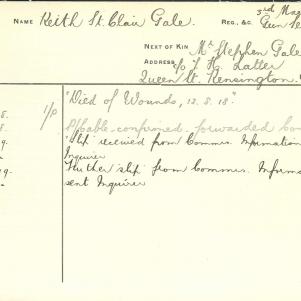 NAME Keith St. Clair Gale. REG., &C.
3rd
NEXT OF KIN Mr Stephen Gale
ADDRESS c/o T. H. Latter
Queen St. Kensington.
"Died of Wounds, 12.8.18."
1/p
confirmed - forwarded
"Slip" received from Commrs. Information
Inquirer
Further slip from Commrs.
sent Inquirer